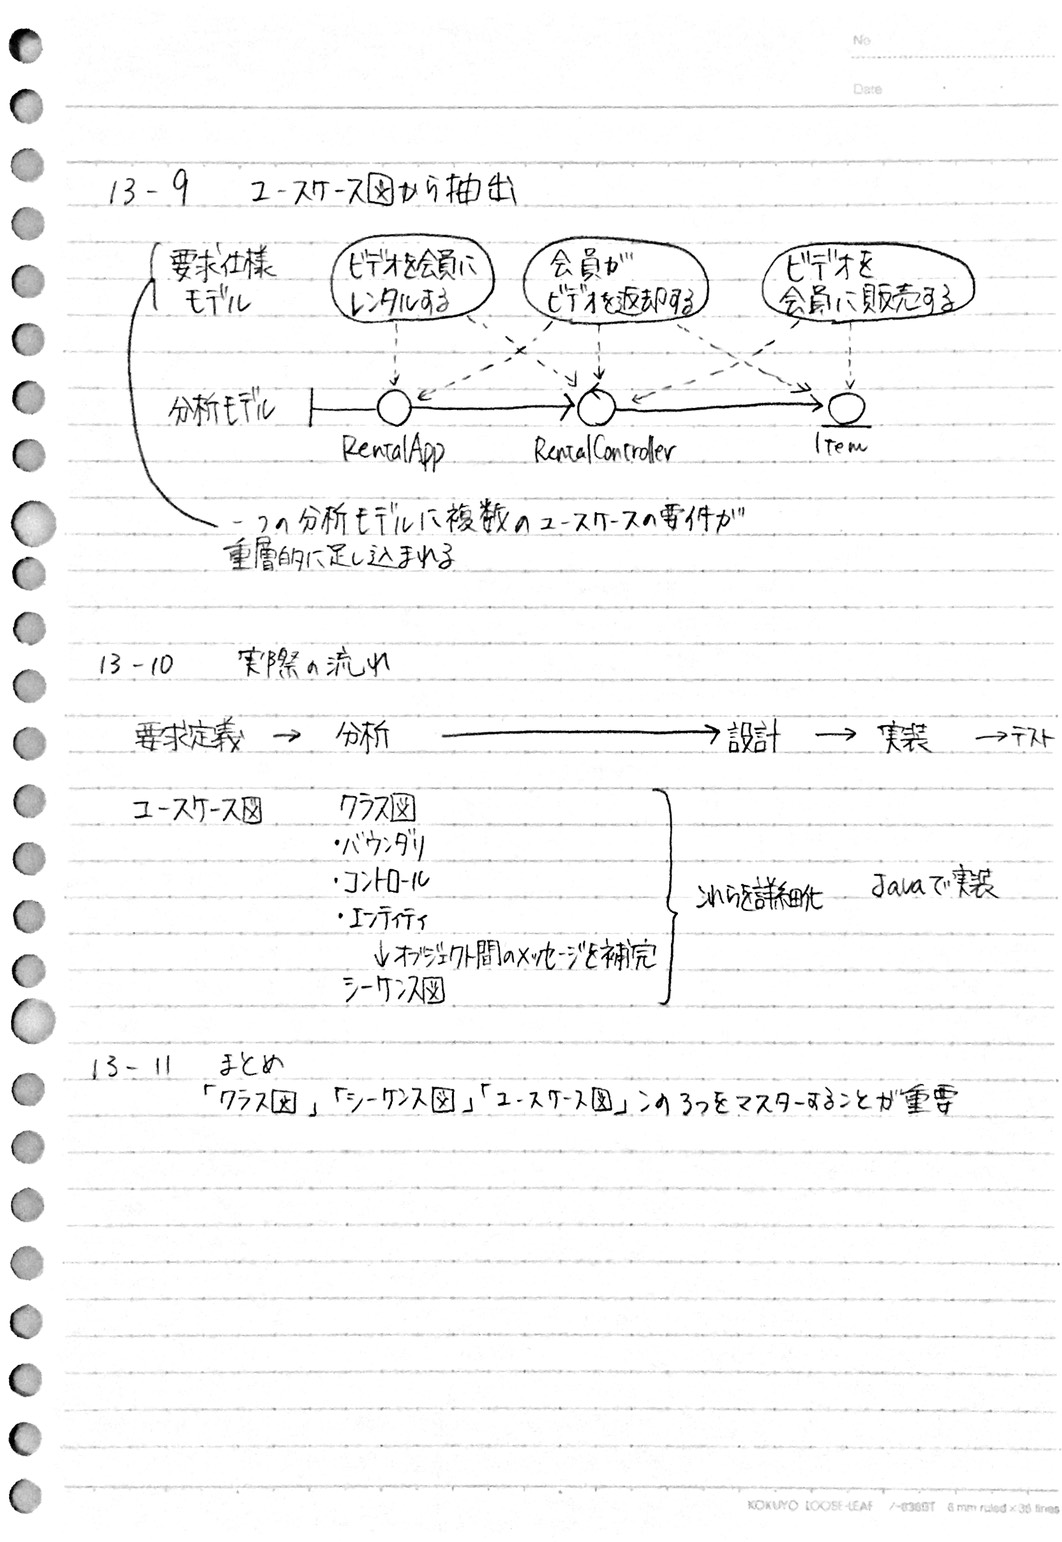 No
Date
13-9 ユースケース図から抽出
要求仕様
モデル
ビデオを会員に
レンタルする
会員が
ビデオを返却する
ビデオを
会員に販売する
分析モデル
RentalApp
RentalController
Item
一つの分析モデルに複数のユースケースの要件が
重層的に足し込まれる
13-10 実際の流れ
要求定義 → 分析 → 設計 → 実装 → テスト
ユースケース図
クラス図
・バウンダリ
・コントロール
・エンティティ
↓オブジェクト間のメッセージを補完
シーケンス図
これらを詳細化
Javaで実装
13-11 まとめ
「クラス図」「シーケンス図」「ユースケース図」この3つをマスターすることが重要
KOKUYO LOOSE-LEAF ノ-836BT 6 mm ruled × 36 lines